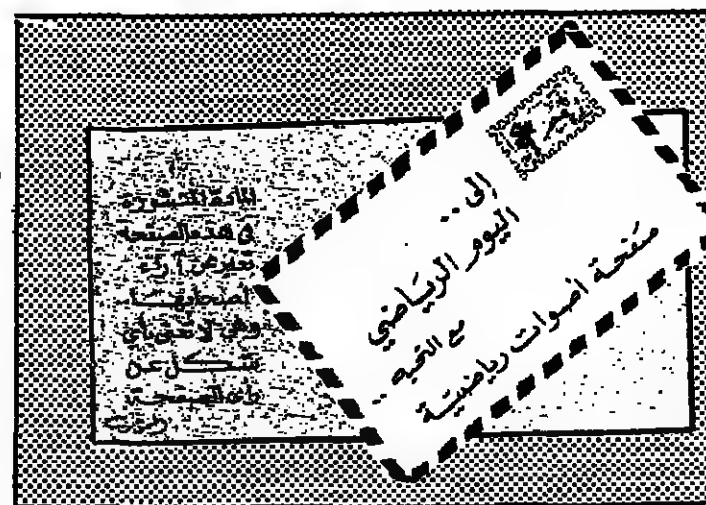 إلى ..
اليوم الرياضي
صفحة أصوات رياضية
مع التحية ..
المادة المنشورة
في هذه الصفحة
تعبر عن آراء
أصحابها
وهي لا تعبر بأي
شكل عن
رأي الصفحة